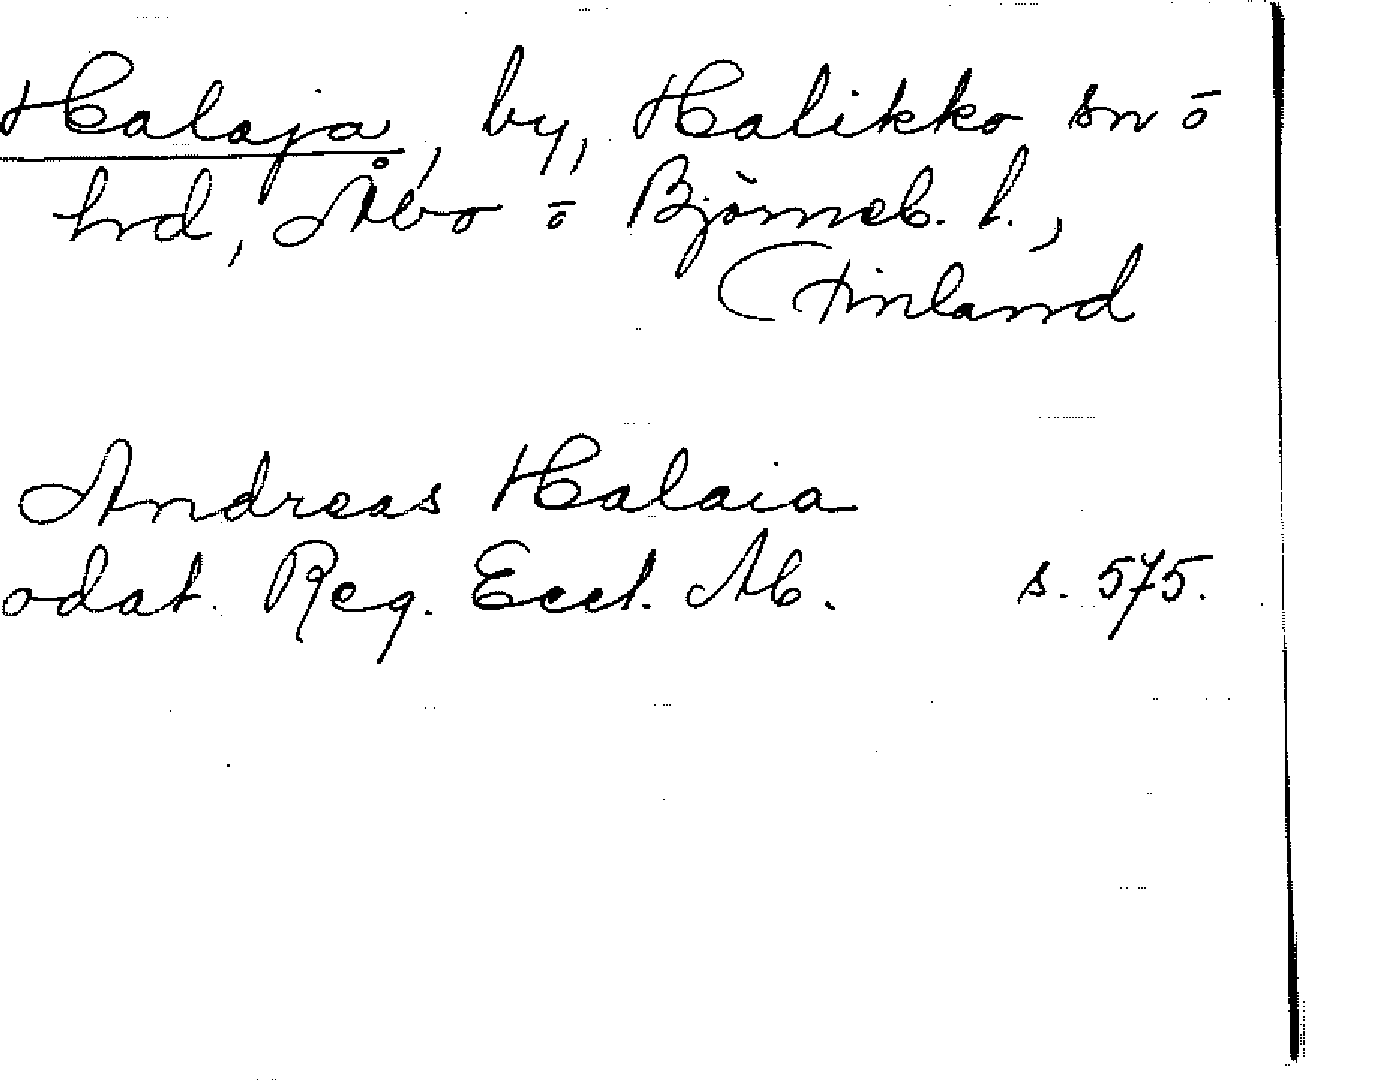 Halaja, by, Halikko sn ō
hrd, Åbo ō Björneb. l.,
Finland
Andreas Halaia
odat. Reg. Eccl. Ab. s. 575.